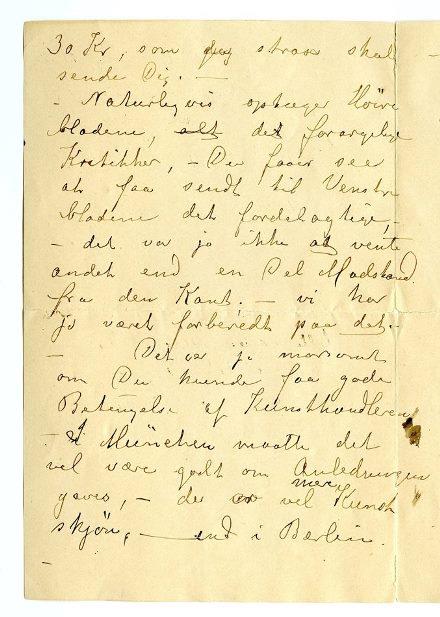 30 Kr, som jeg strax skal
sende Dig. —
– Naturligvis optager Höire
bladene, alt det forargelige
Kritikker, – Du faar see
at faa sendt til Venstre
bladene det fordelagtige, –
– det var jo ikke at vente
andet end en Del Modstand
fra den Kant, – vi har
jo været forberedt paa det. –
– Det var jo morsomt
om Du kunde faa gode
Betingelse af Kunsthandleren
– I München maatte det
vel være godt om Anledningen
gaves, – der er vel mere Kunst
skjön, – end i Berlin.